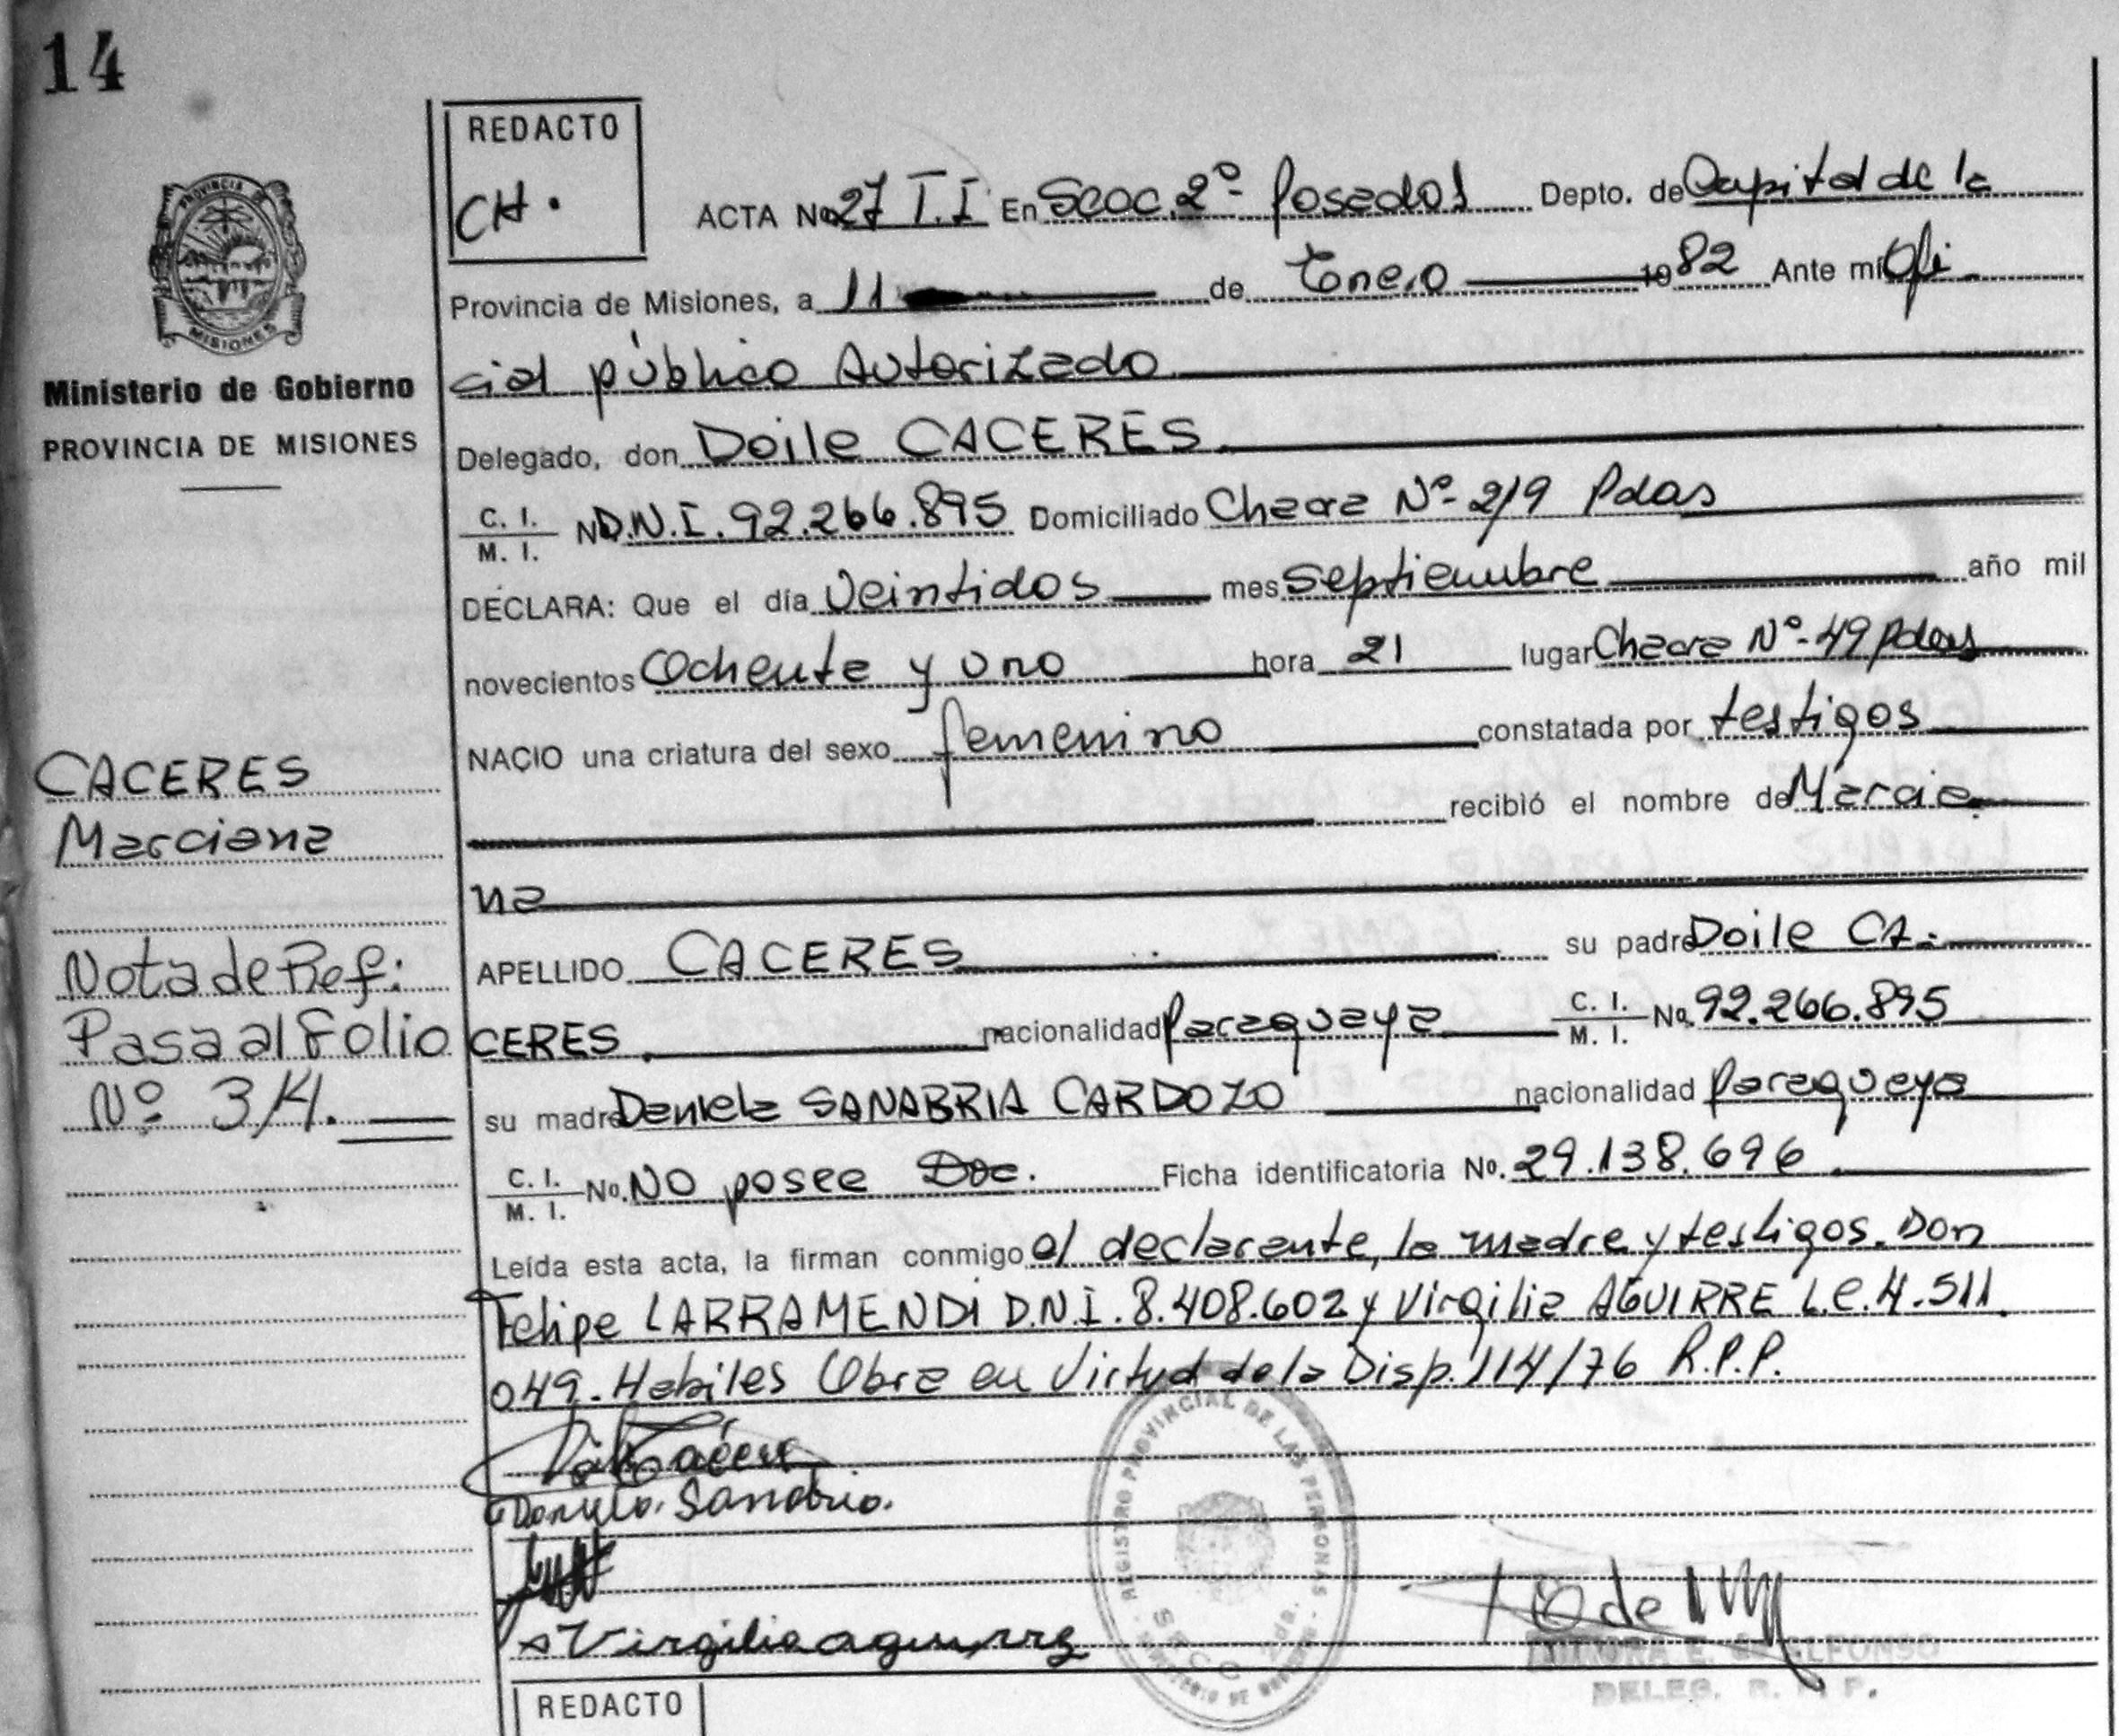 14
REDACTO
CH.
PROVINCIA DE
MISIONES
Ministerio de Gobierno
PROVINCIA DE MISIONES
ACTA No 27 T.I En Secc. 2º- Posadas Depto. de Capital de la
Provincia de Misiones, a 11 de Enero 1982 Ante mí Ofi-
cial público Autorizado
Delegado, don Doile CACERES
C. I.
M. I. N D.N.I. 92.266.895 Domiciliado Chacra Nº- 219 Pdas
DECLARA: Que el día Veintidos mes Septiembre año mil
novecientos Ochenta y uno hora 21 lugar Chacra Nº- 49 Pdas
NACIO una criatura del sexo femenino constatada por testigos
recibió el nombre de Marcia
na
APELLIDO CACERES su padre Doile CA-
CERES nacionalidad Paraguaya C. I.
M. I. No. 92.266.895
su madre Daniela SANABRIA CARDOZO nacionalidad Paraguaya
C. I.
M. I. No. NO posee Doc. Ficha identificatoria No. 29.138.696
Leída esta acta, la firman conmigo el declarante, la madre y testigos. Don
Felipe LARRAMENDI D.N.I. 8.408.602 y Virgilia AGUIRRE L.C. 4.511.
049. Habiles Obra en Virtud de la Disp. 114/76 R.P.P.
CACERES
Marciana
Nota de Ref:
Pasa al Folio
Nº 314.
Sanabria.
Virgilia aguirre
REGISTRO PROVINCIAL DE LAS PERSONAS
ALFONSO
DELEG. R. P. P.
REDACTO